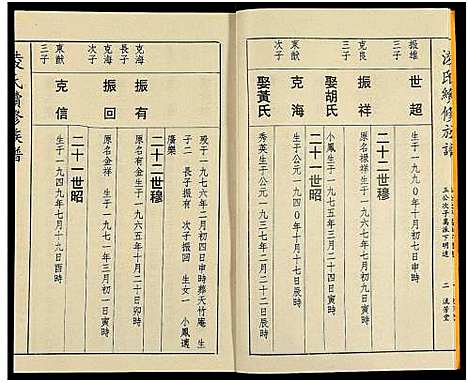 凌氏續修族譜
玉公次子萬派下明遠
二
振雄
三子
世超
生于一九九〇年十月十七日午時
二十二世穆
克良
長子
振祥
原名樣祥 生于一九六七年七月初九日寅時
娶胡氏
小鳳生于一九七五年三月二十四日寅時
二十一世昭
東猷
次子
克海
生于公元一九四〇年十月十七日辰時
娶黃氏
秀英生于公元一九三七年二月二十二日辰時
歿于一九七六年二月初四日申時葬天竹庵 生
子二 長子振有 次子振回 生女一 小鳳適
廣樂
二十二世穆
克海
長子
振有
原名有金生于一九六五年十月二十日卯時
克海
次子
振回
原名金祥 生于一九七一年三月初一日寅時
二十一世昭
東猷
三子
克信
生于一九四九年七月十九日酉時
凌氏續修族譜